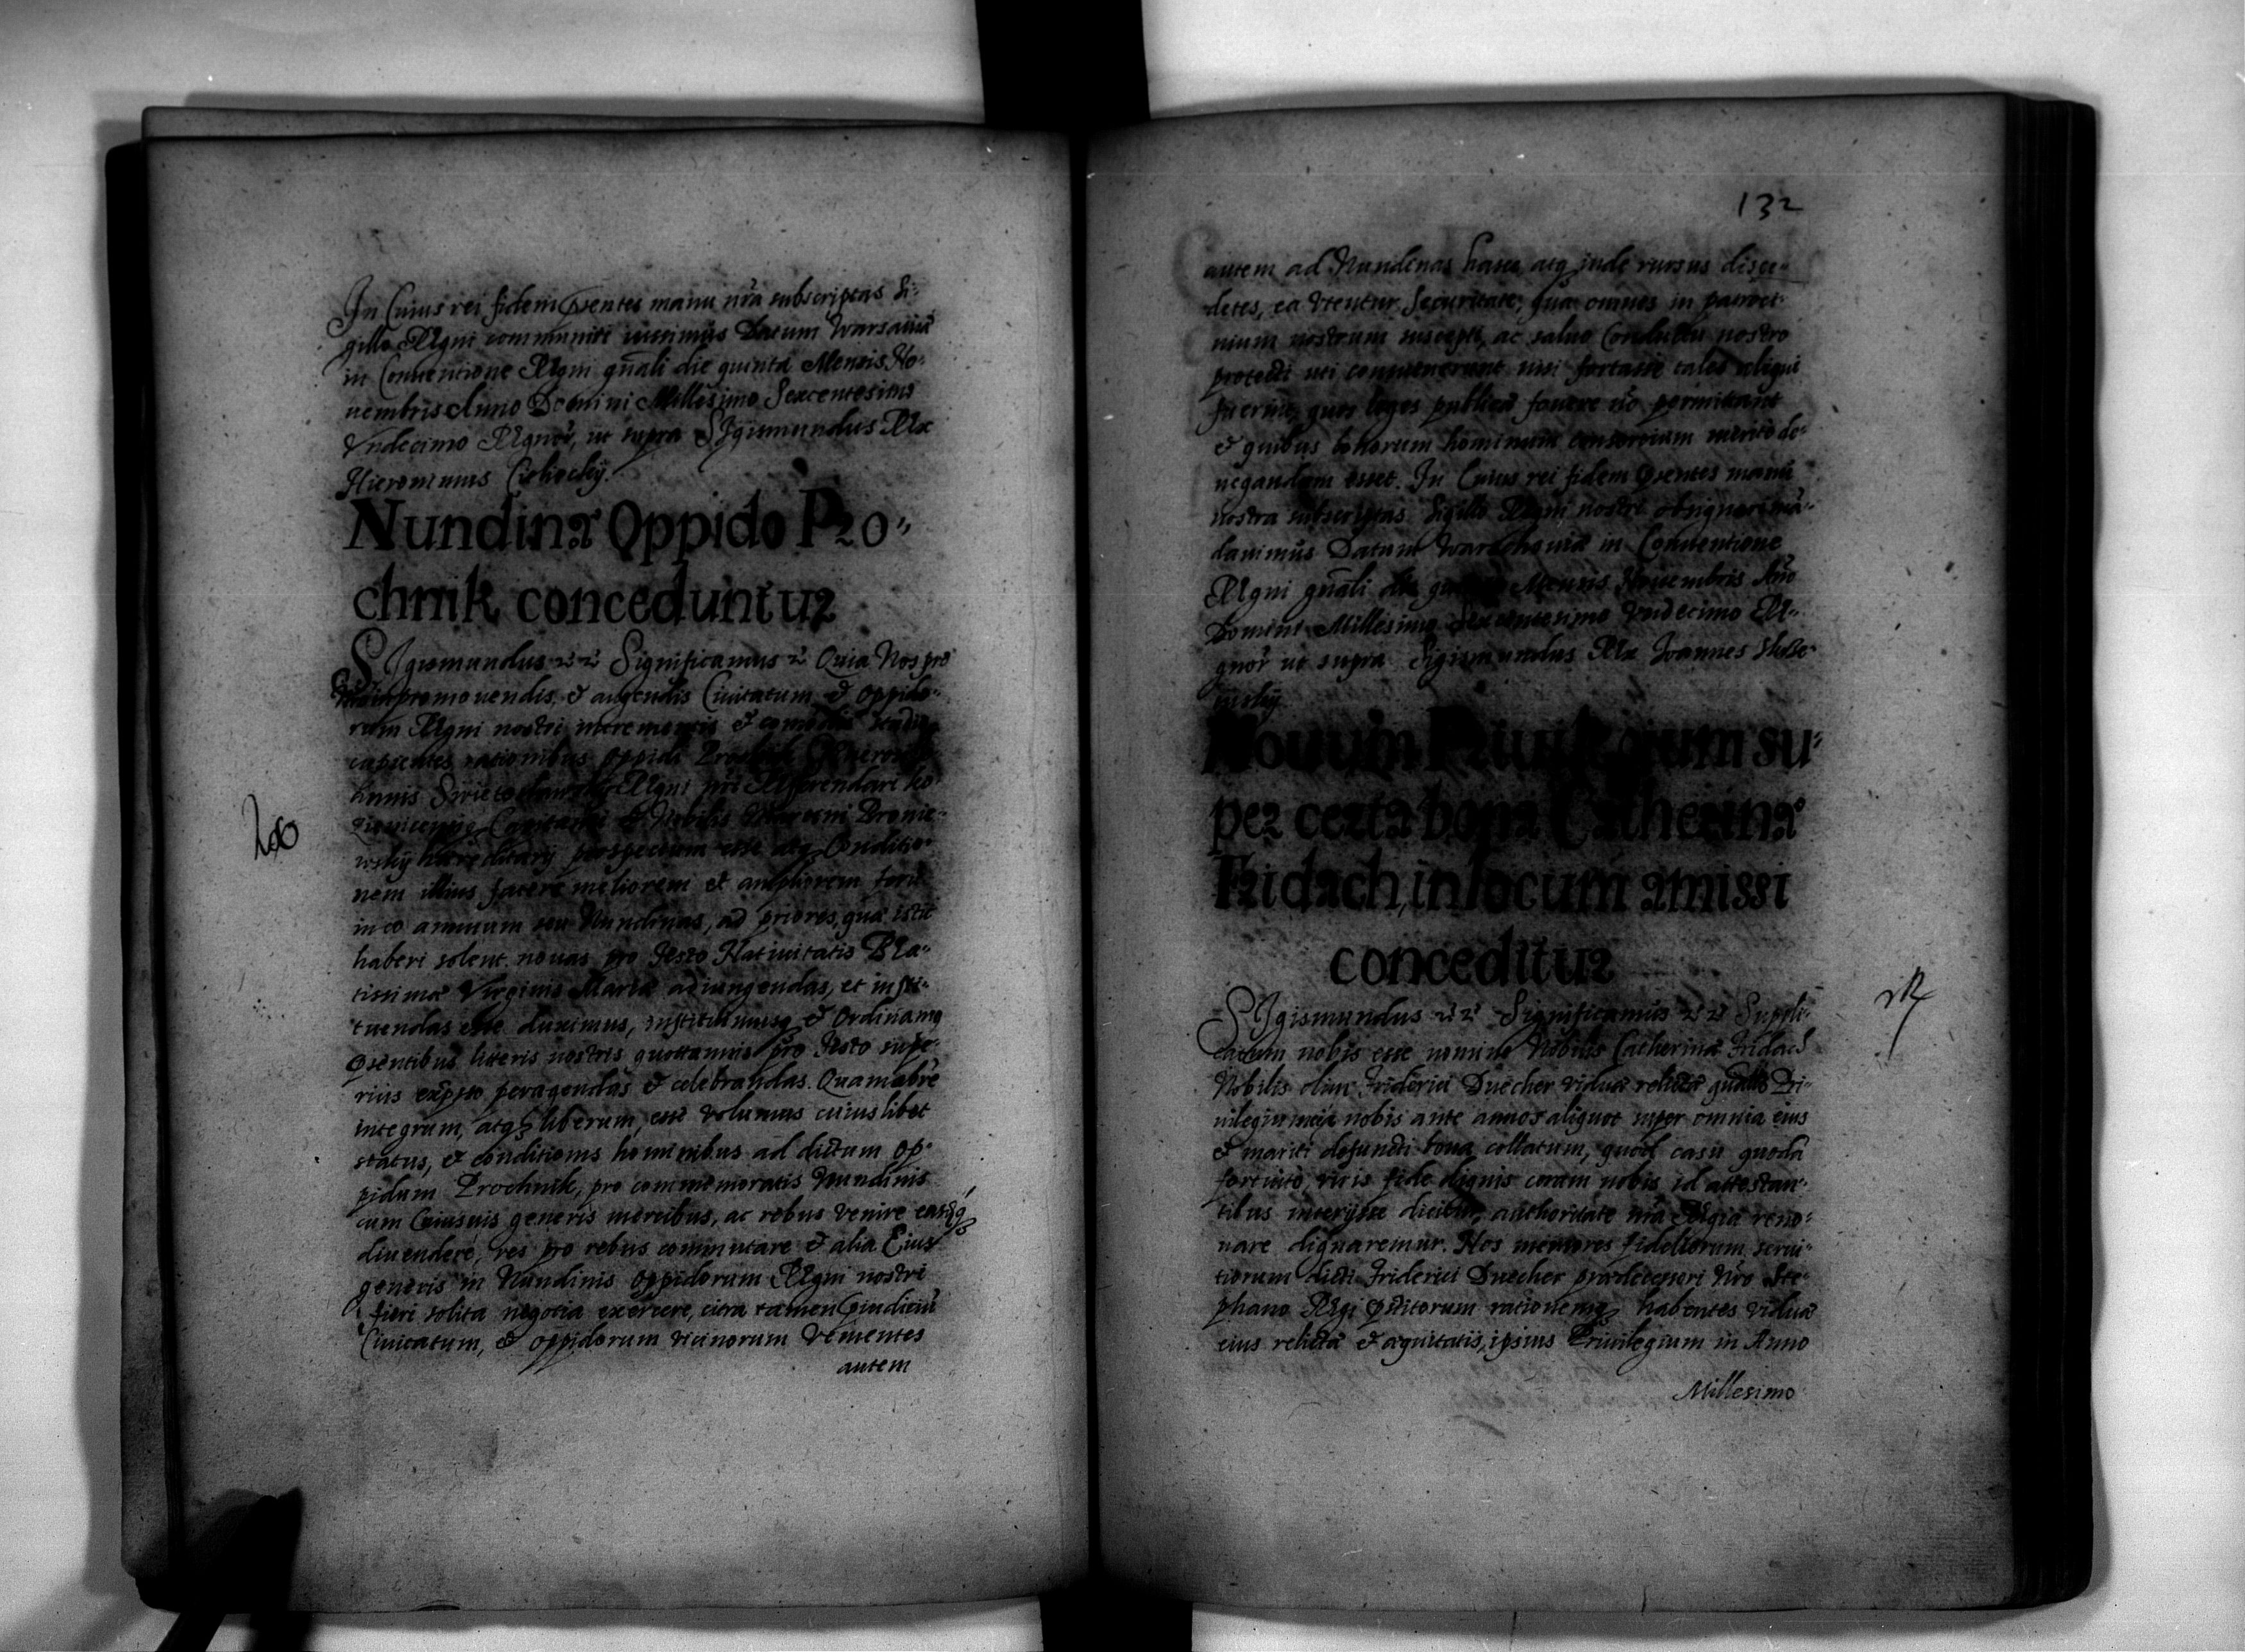 In Cuius rei fidem pñtes manu nrã subscriptas Si-
gillo Regni communiri iussimus Datum Warsauiæ
in Conuentione Regni gñali die quinta Mensis No-
uembris Anno Domini Millesimo Sexcentesimo
Vndecimo Regnor, ut supra Sigismundus Rex
Hieronimus Cielecky.
Nundinæ Oppido Pro-
chnik conceduntur
Sigismundus &c Significamus & Quia Nos pro
promouendis, & augendis Ciuitatum & oppido-
rum Regni nostri incrementis &
capientes rationibus oppidi Prochnik
Regni Referendarii
Nobilis
wskÿ hæreditarÿ perspectum esse atq Conditio-
nem illius facere meliorem et ampliorem
in eo annuum seu Nundinas, ad priores, quæ istic
haberi solent, nouas pro festo Natiuitatis Bea-
tissimæ Virginis Mariæ adiungendas, et insti-
tuendas esse duximus, instituimusq & Ordinamq
pñtibus literis nostris quotannis pro festo supe-
rius expsso peragendas & celebrandas. Quamobrẽ
integrum, atq liberum, esse volumus cuiuslibet
status, & conditionis hominibus ad dictum op-
pidum Prochnik, pro commemoratis Nundinis
cum Cuiusuis generis mercibus, ac rebus venire easq
diuendere, res pro rebus commutare & alia Eius
generis in Nundinis oppidorum Regni nostri
fieri solita negotia exercere, citra tamen piudiciũ
Ciuitatum, & oppidorum vicinorum Venientes
autem
132
autem ad Nundinas hasce atq inde rursus disce-
detes, ea vtentur Securitate, qua omnes in patroci-
nium nostrum suscepti, ac saluo Conductu nostro
protecti uti consueuerunt nisi fortasse tales aliqui
fuerint, quos leges publicæ fouere nõ permittant
& quibus bonorum hominum consortium merito de-
negandum esset. In Cuius rei fidem pñtes manu
nostra subscriptas Sigillo Regni nostri obsignari mã-
dauimus Datum Warschouiæ in Conuentione
Regni gñali die Mensis Nouembris Año
Domini Millesimo Sexcentesimo Vndecimo Re-
gnor ut supra Sigismundus Rex Joannes
Nouum Priuilegium su-
per certa bona Catherinæ
Fridach, in locum amissi
conceditur
Sigismundus && Significamus && Suppli-
catum nobis esse nomine Nobilis Catherinæ Fridach
Nobilis olim Friderici Duecher viduæ relictæ Pri-
uilegium nobis ante annos aliquot super omnia eius
& mariti defuncti bona collatum, quod casu quodã
fortuito, viris fide dignis coram nobis id attestan-
tibus interÿsse dicitur, authoritate nrã Regia reno-
uare dignaremur. Nos memores fideliorum serui-
tiorum dicti Friderici Duecher prædecessori Nro Ste-
phano Regi pstitorum rationemq habentes viduæ
eius relictæ & æquitatis, ipsius Priuilegium in Anno
Millesimo